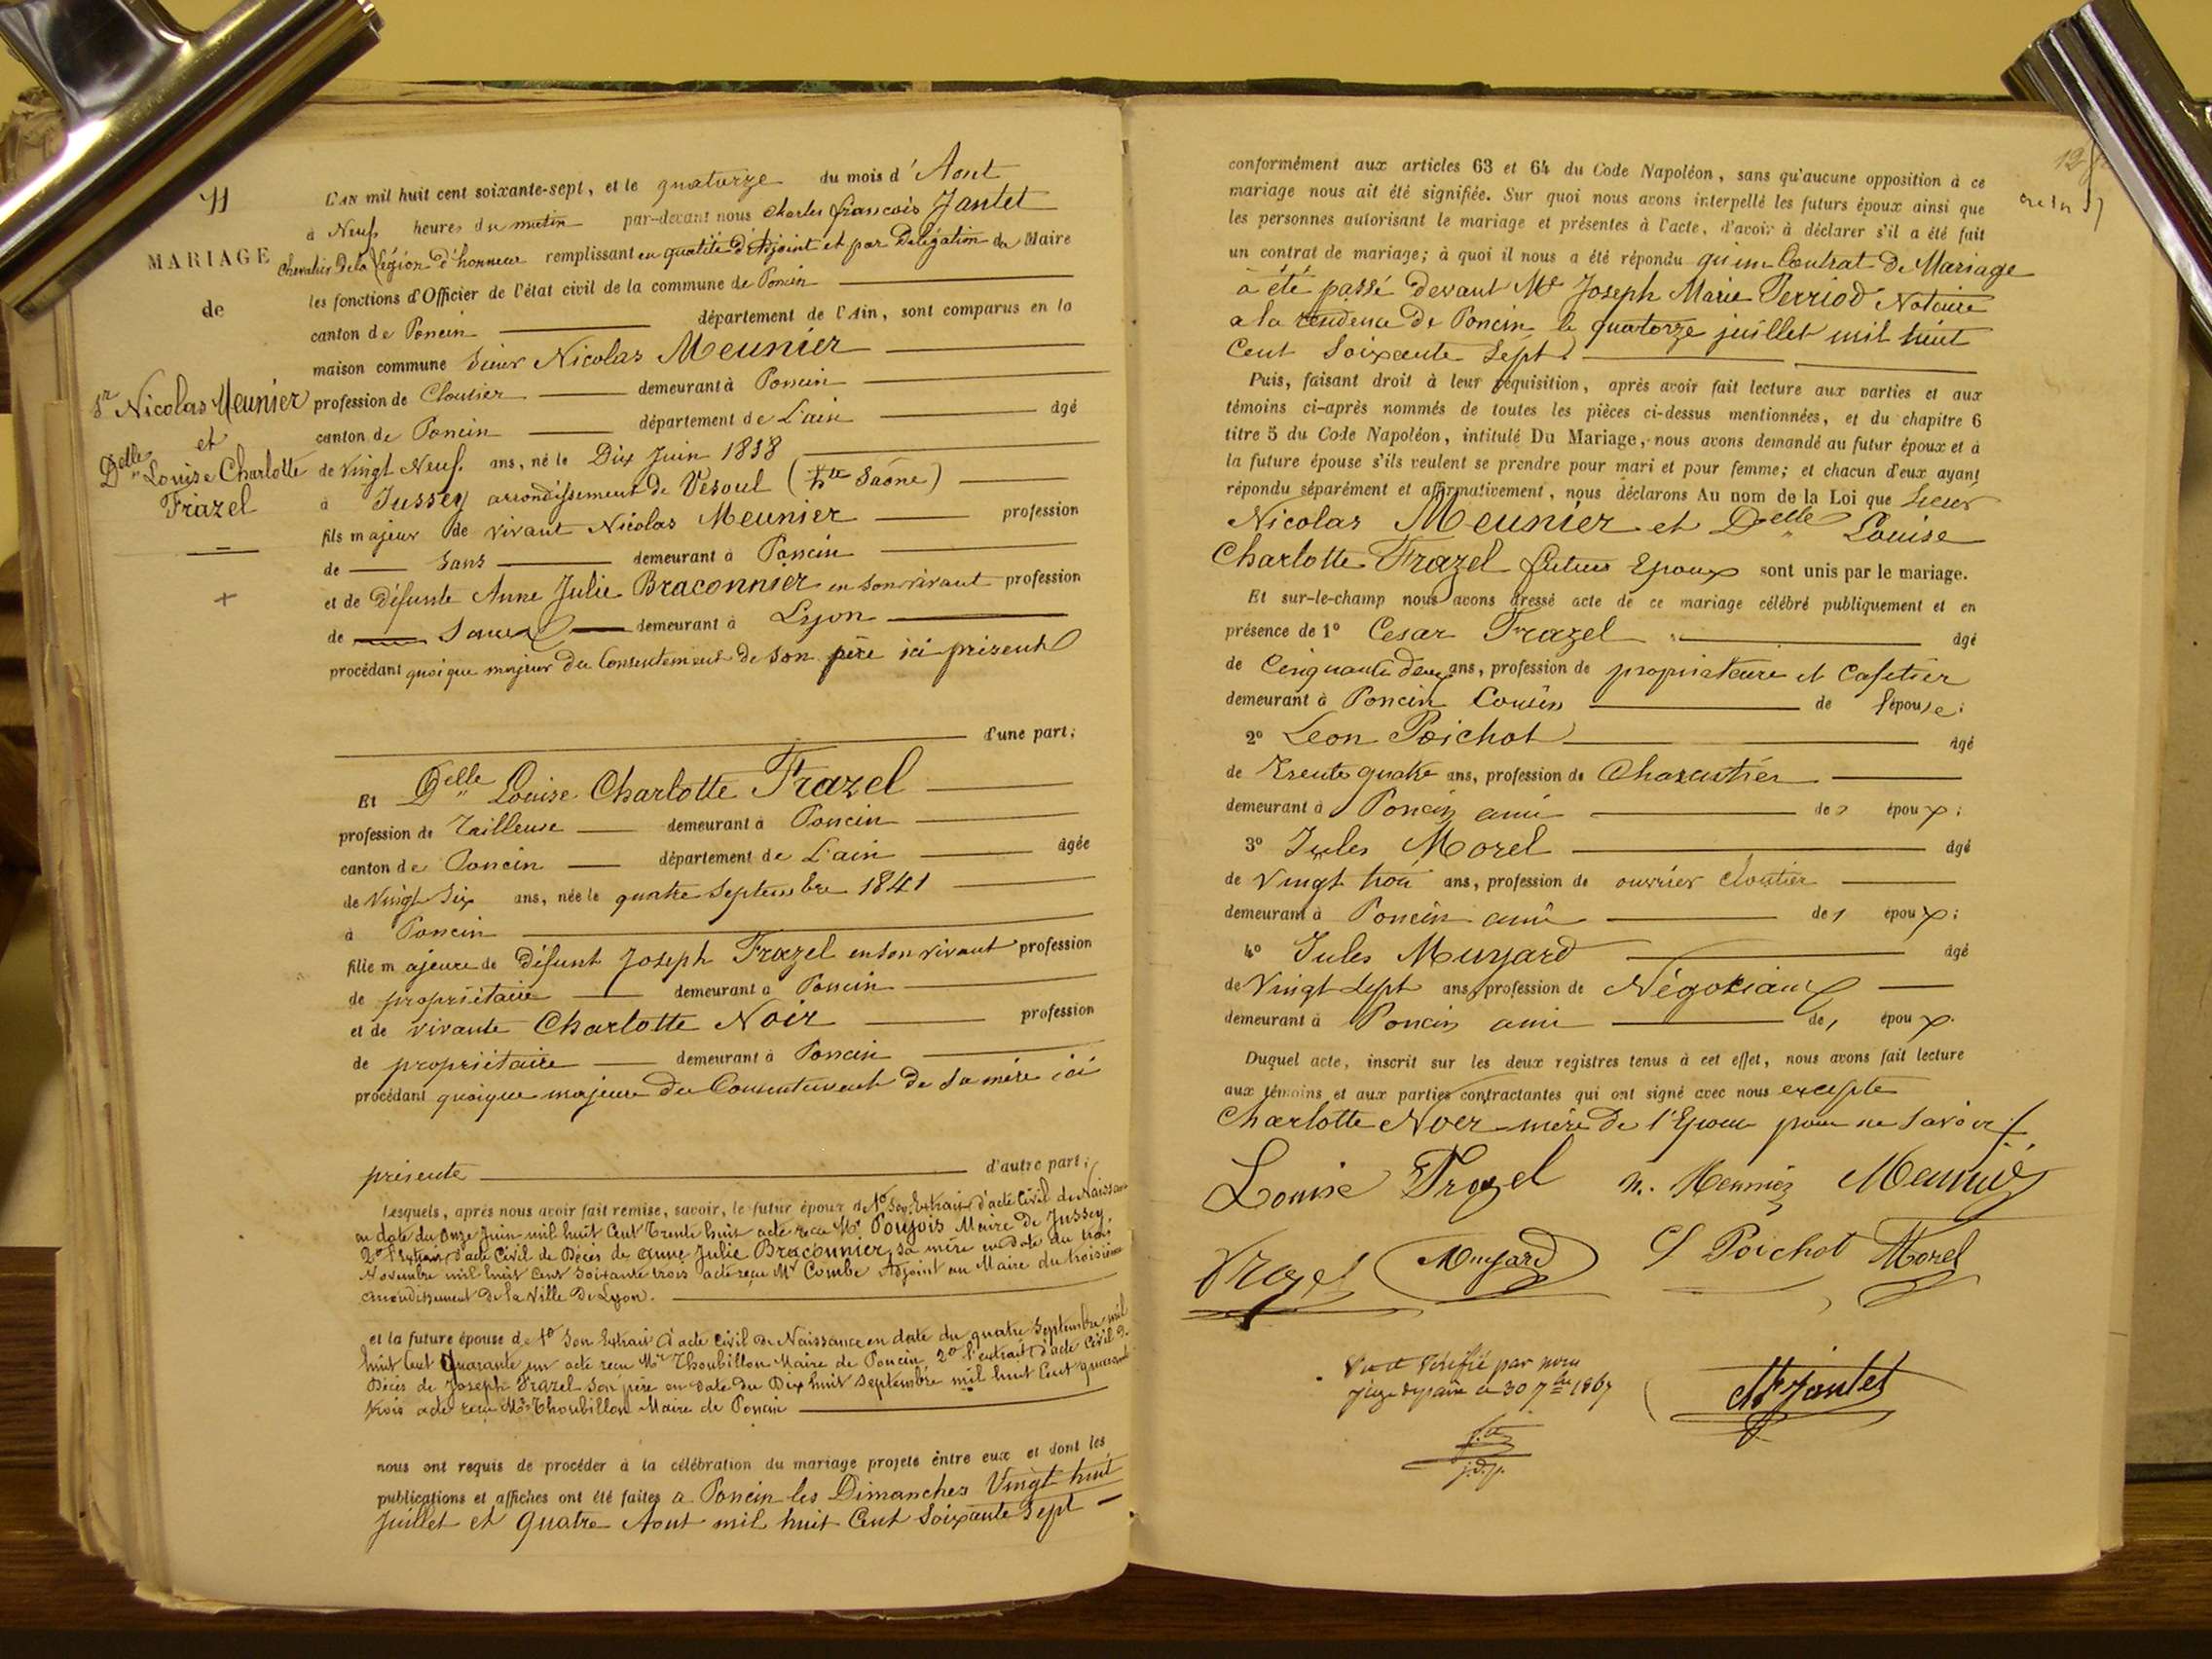 11
MARIAGE
de
Sr Nicolas Meunier
et
Delle Louise Charlotte
Frazel
L'AN mil huit cent soixante-sept, et le quatorze du mois d'Aout
à Neuf heures du matin par-devant nous Charles françois Jantet
Chevalier De la Légion d'honneur remplissant en qualité d'Adjoint et par Delégation du Maire
les fonctions d'Officier de l'état civil de la commune de Poncin
canton de Poncin département de l'Ain, sont comparus en la
maison commune Sieur Nicolas Meunier
profession de Cloutier demeurant à Poncin
canton de Poncin département de L'ain âgé
de vingt Neuf ans, né le Dix Juin 1838
à Jussey arrondissement de Vesoul (hte Saône)
fils majeur de vivant Nicolas Meunier profession
de Sans demeurant à Poncin
et de Défunte Anne Julie Braconnier en son vivant profession
de Sans demeurant à Lyon
procédant quoique majeur du Consentement de son père ici présent
d'une part;
Et Delle Louise Charlotte Frazel
profession de Tailleuse demeurant à Poncin
canton de Poncin département de L'ain âgée
de Vingt Six ans, née le quatre Septembre 1841
à Poncin
fille majeure de Défunt Joseph Frazel en son vivant profession
de propriétaire demeurant à Poncin
et de vivante Charlotte Noir profession
de propriétaire demeurant à Poncin
procédant quoique majeure du Consentement de Sa mère ici
présente d'autre part;
Lesquels, après nous avoir fait remise, savoir, le futur époux de 1o Son Extrait d'acte Civil de Naissance
en date du Onze Juin mil huit Cent Trente huit acte reçu Mr Poujois Maire de Jussey,
2o l'Extrait d'acte Civil de Décès de Anne Julie Braconnier sa mère en date du trois
Novembre mil huit Cent Soixante trois acte reçu Mr Combe Adjoint au Maire du troisième
arrondissement de la Ville De Lyon.
et la future épouse de 1o Son Extrait d'acte Civil de Naissance en date du quatre Septembre mil
huit Cent Quarante un acte reçu Mr Thoubillon Maire de Poncin, 2o l'extrait d'acte Civil de
Décès de Joseph Frazel Son père en date du Dix huit Septembre mil huit Cent quarante
trois acte reçu Mr Thoubillon Maire de Poncin
nous ont requis de procéder à la célébration du mariage projeté entre eux et dont les
publications et affiches ont été faites a Poncin les Dimanches Vingt huit
Juillet et Quatre Aout mil huit Cent Soixante Sept
conformément aux articles 63 et 64 du Code Napoléon, sans qu'aucune opposition à ce
mariage nous ait été signifiée. Sur quoi nous avons interpellé les futurs époux ainsi que
les personnes autorisant le mariage et présentes à l'acte, d'avoir à déclarer s'il a été fait
un contrat de mariage; à quoi il nous a été répondu qu'un Contrat de Mariage
à été passé Devant Me Joseph Marie Perriod Notaire
a la résidence De Poncin le quatorze juillet mil huit
Cent Soixante Sept
Puis, faisant droit à leur réquisition, après avoir fait lecture aux parties et aux
témoins ci-après nommés de toutes les pièces ci-dessus mentionnées, et du chapitre 6
titre 5 du Code Napoléon, intitulé Du Mariage, nous avons demandé au futur époux et à
la future épouse s'ils veulent se prendre pour mari et pour femme; et chacun d'eux ayant
répondu séparément et affirmativement, nous déclarons Au nom de la Loi que Sieur
Nicolas Meunier et Delle Louise
Charlotte Frazel futurs Epoux sont unis par le mariage.
Et sur-le-champ nous avons dressé acte de ce mariage célébré publiquement et en
présence de 1o Cesar Frazel âgé
de Cinquante deux ans, profession de propriétaire et Cafetier
demeurant à Poncin Cousin de l'épouse;
2o Leon Poichot âgé
de Trente quatre ans, profession de Charcutier
demeurant à Poncin ami de l'époux;
3o Jules Morel âgé
de Vingt trois ans, profession de ouvrier cloutier
demeurant à Poncin ami de l'époux;
4o Jules Muyard âgé
de Vingt Sept ans, profession de Négociant
demeurant à Poncin ami de l'époux.
Duquel acte, inscrit sur les deux registres tenus à cet effet, nous avons fait lecture
aux témoins et aux parties contractantes qui ont signé avec nous excepté
Charlotte Noer mère De l'Epouse pour ne savoir
Louise Frazel n. Meunier Meunier
Frazel Muyard Poichot Morel
Vu et Vérifié par nous
juge de paix le 30 7bre 1867
Ch Jantet
j.d.p.